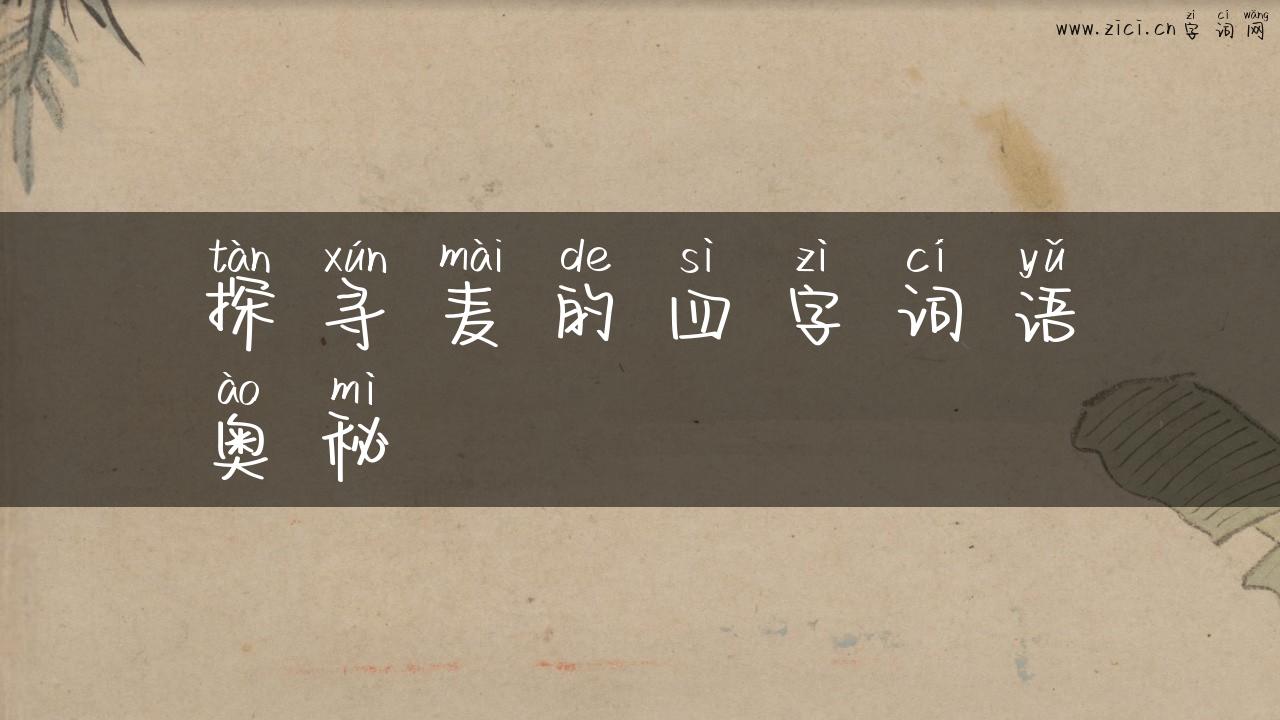 zì cí wǎng
www.zici.cn 字词网
tàn xún mài de sì zì cí yǔ
探寻麦的四字词语
ào mì
奥秘